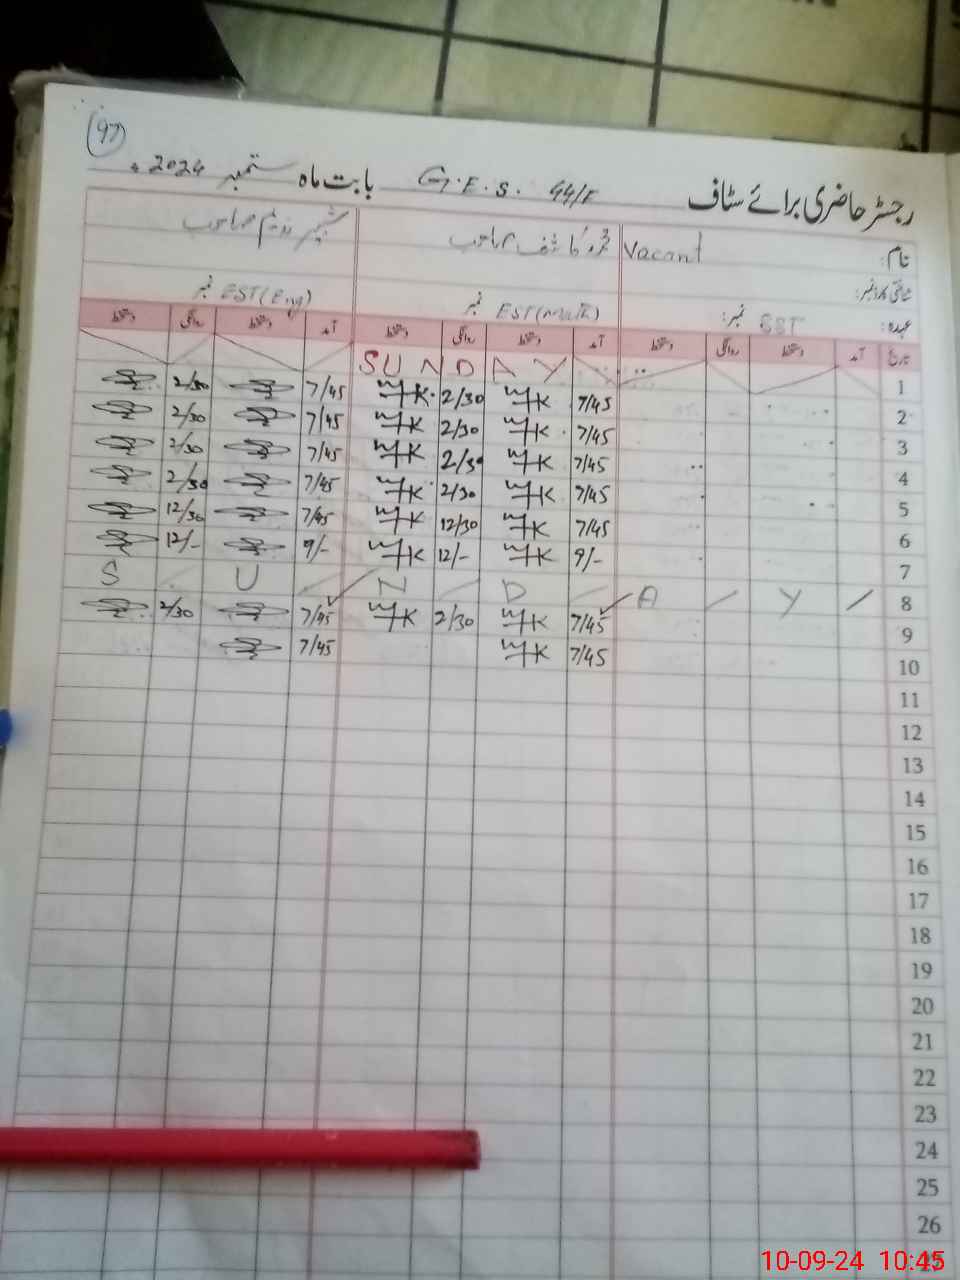 97
رجسٹر حاضری برائے سٹاف G.E.S. 44/E بابت ماہ ستمبر 2024ء
نام: Vacant
شناختی کارڈ نمبر:
عہدہ: SST نمبر: EST(Math) نمبر EST(Eng) نمبر
تاریخ آمد دستخط روانگی دستخط آمد دستخط روانگی دستخط آمد دستخط روانگی دستخط
1 SUNDAY
2 7/45 2/30 7/45 2/30
3 7/45 2/30 7/45 2/30
4 7/45 2/30 7/45 2/30
5 7/45 2/30 7/45 2/30
6 7/45 12/30 7/45 12/30
7 9/- 12/- 9/- 12/-
8 S U N D A Y
9 7/45 2/30 7/45 2/30
10 7/45 7/45
11
12
13
14
15
16
17
18
19
20
21
22
23
24
25
26
10-09-24 10:45